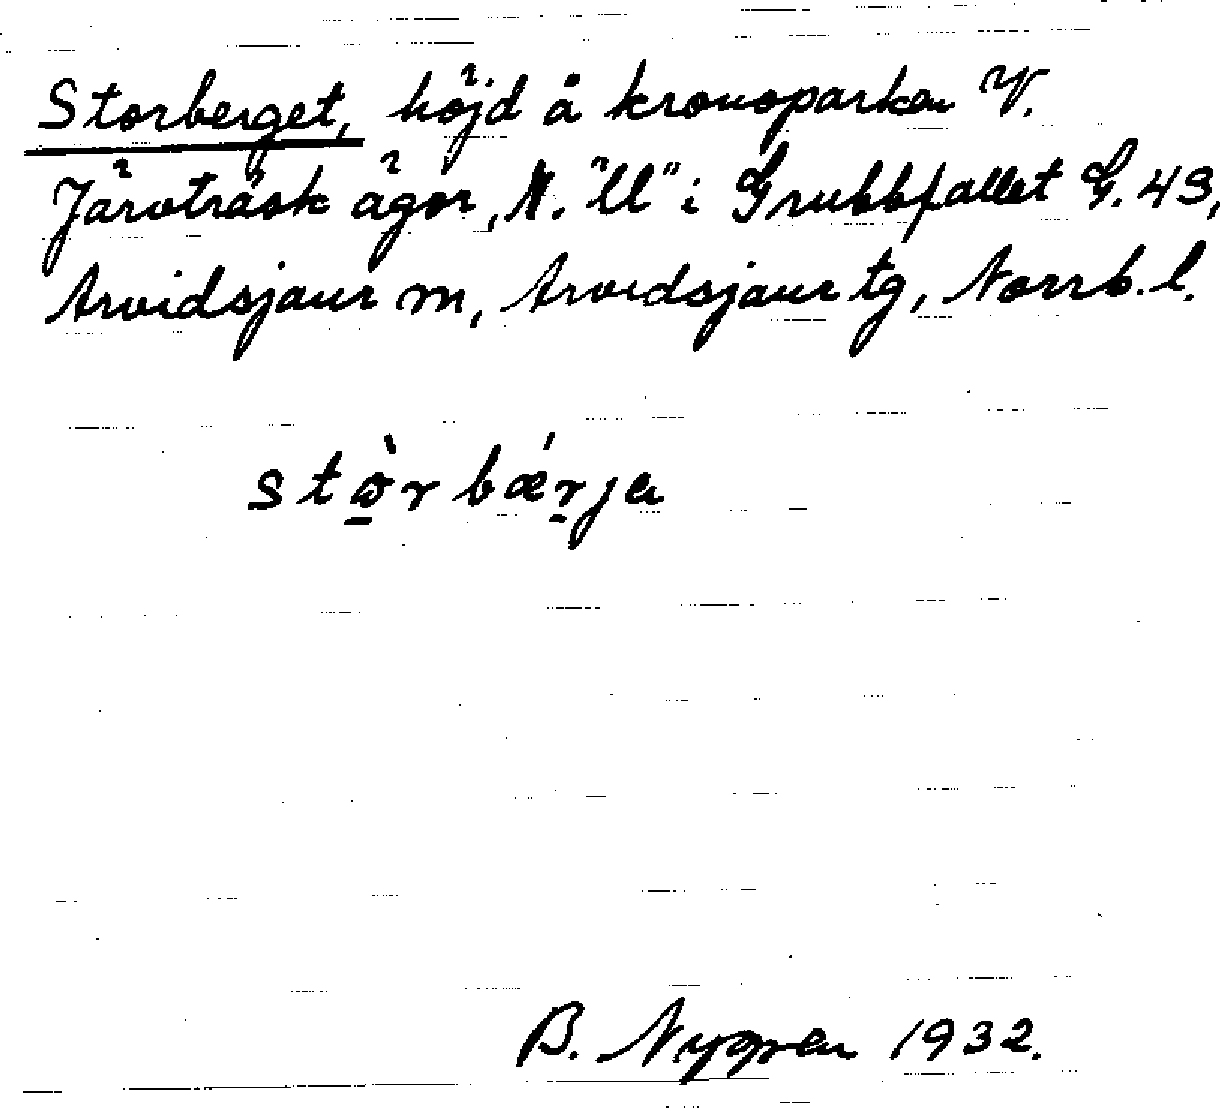 Storberget, höjd å kronoparken V.
Järvträsk ägor, N. "U" i Grubbfallet G. 43,
Arvidsjaur m, Arvidsjaur tg, Norrb. l.
stò̱rbǽṟja
B. Nygren 1932.